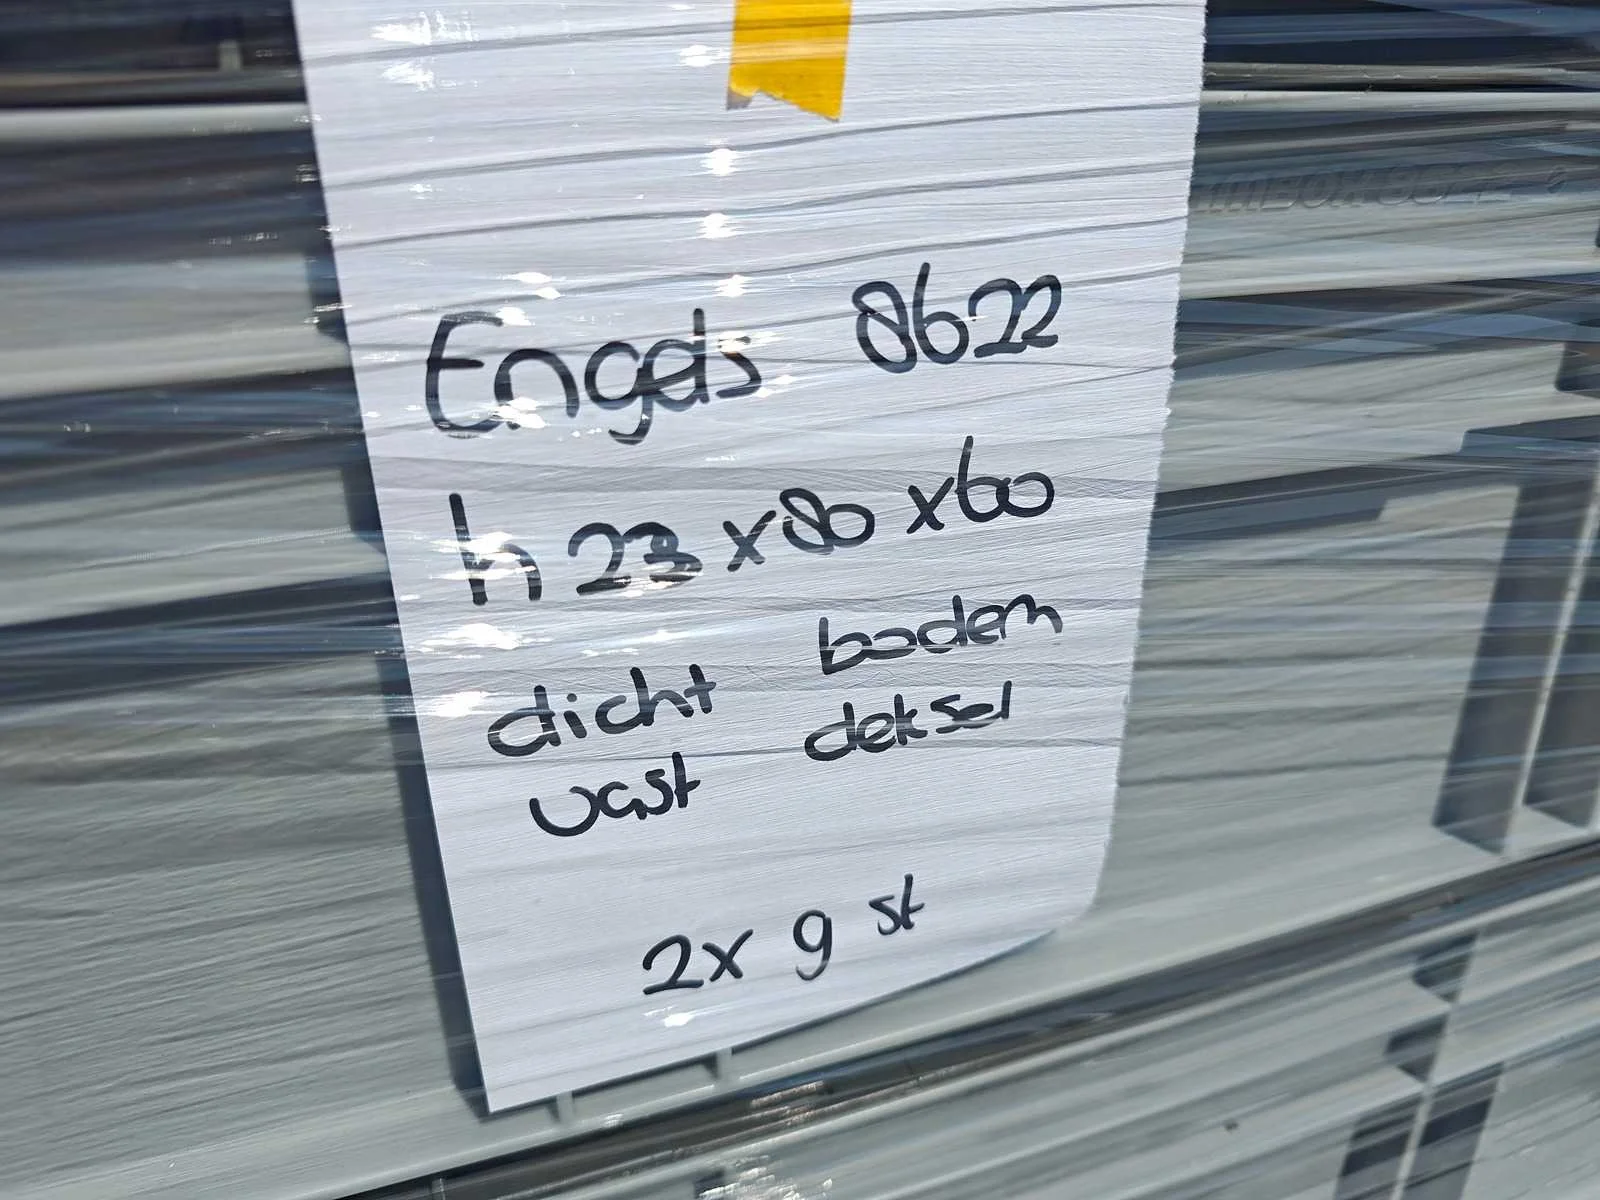 Engels 8622
h 23 x 80 x 60
dicht bodem
vast deksel
2x 9 st